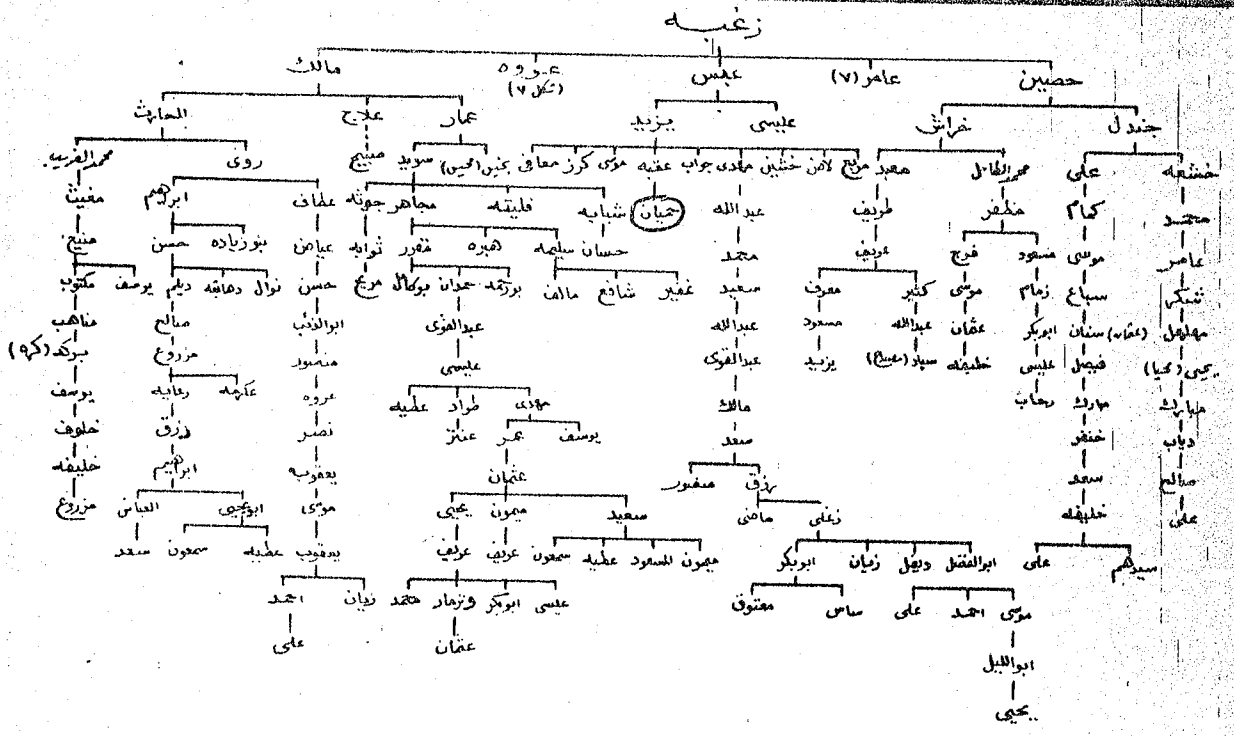 زغبه
حصين عامر (٧) عبس عروه مالك
(شكل ٧)
جندل خراش عليسى يزيد عمار علاج الحارث
خشعه على محمد الطائل معبد مريع لاحق خشين مهدى جواب عقبه موسى كرز معافى سويد صبيح روى محمد الغريب
محمد كمام مظفر طريف عبدالله حميان شبابه فليفه مجاهر جوثه عطاف ابراهيم مغيث
عامر موسى مسعود فرج عريف محمد حسان سليمه هبره غفور ثوابه عياض بنو زياده حسن منيع
شكر سباع زمام موسى كثير معرف سعيد غفير شافع مالف بورحمه حمدان بوكامل مريع حسن نوال دهاقنه ديلم يوسف مكتوب
مهلهل (عثمان) سنان ابوبكر عثمان عبدالله مسعود عبدالله عبدالقوى ابوالذئب صالح مناهب
يحيى (يحيا) فيصل عليسى خليفه سياد (مصباح) يزيد عبدالقوى عليسى منصور مزروع بوكد (كره)
مبارك مبارك رحاب مالك مهدى طراد عطيه عروه عكرمه رعابه يوسف
دياب خنفر سعد يوسف عمر عنتر نصر رزق خلوف
صالح سعد رزق منصور عثمان يعقوب ابراهيم خليفه
على خليفه زغلى ماضى سعيد ميمون يحيى موسى ابو يحيى العباس مزروع
سيدهم على ابوالفضل ديفل زميان ابوبكر ميمون المسعود عطيه سمعون عريف عريف يعقوب عطيه سمعون سعد
موسى احمد على ساسى معتوق عيسى ابوبكر ونزمار محمد زيان احمد
ابوالليل عثمان على
يحيى